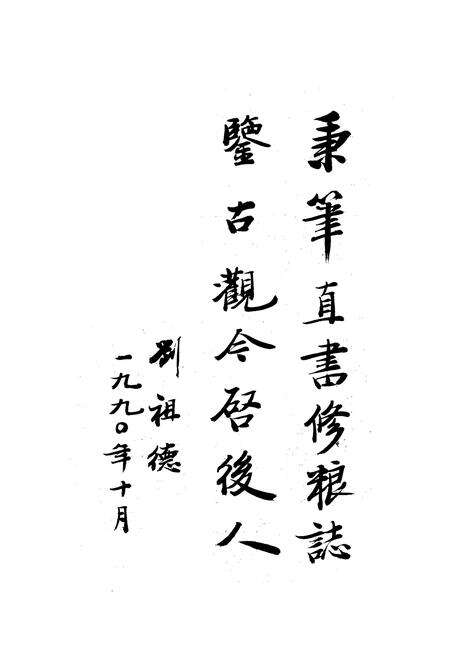 秉筆直書修粮誌
鑒古觀今啓後人
劉祖德
一九九〇年十月